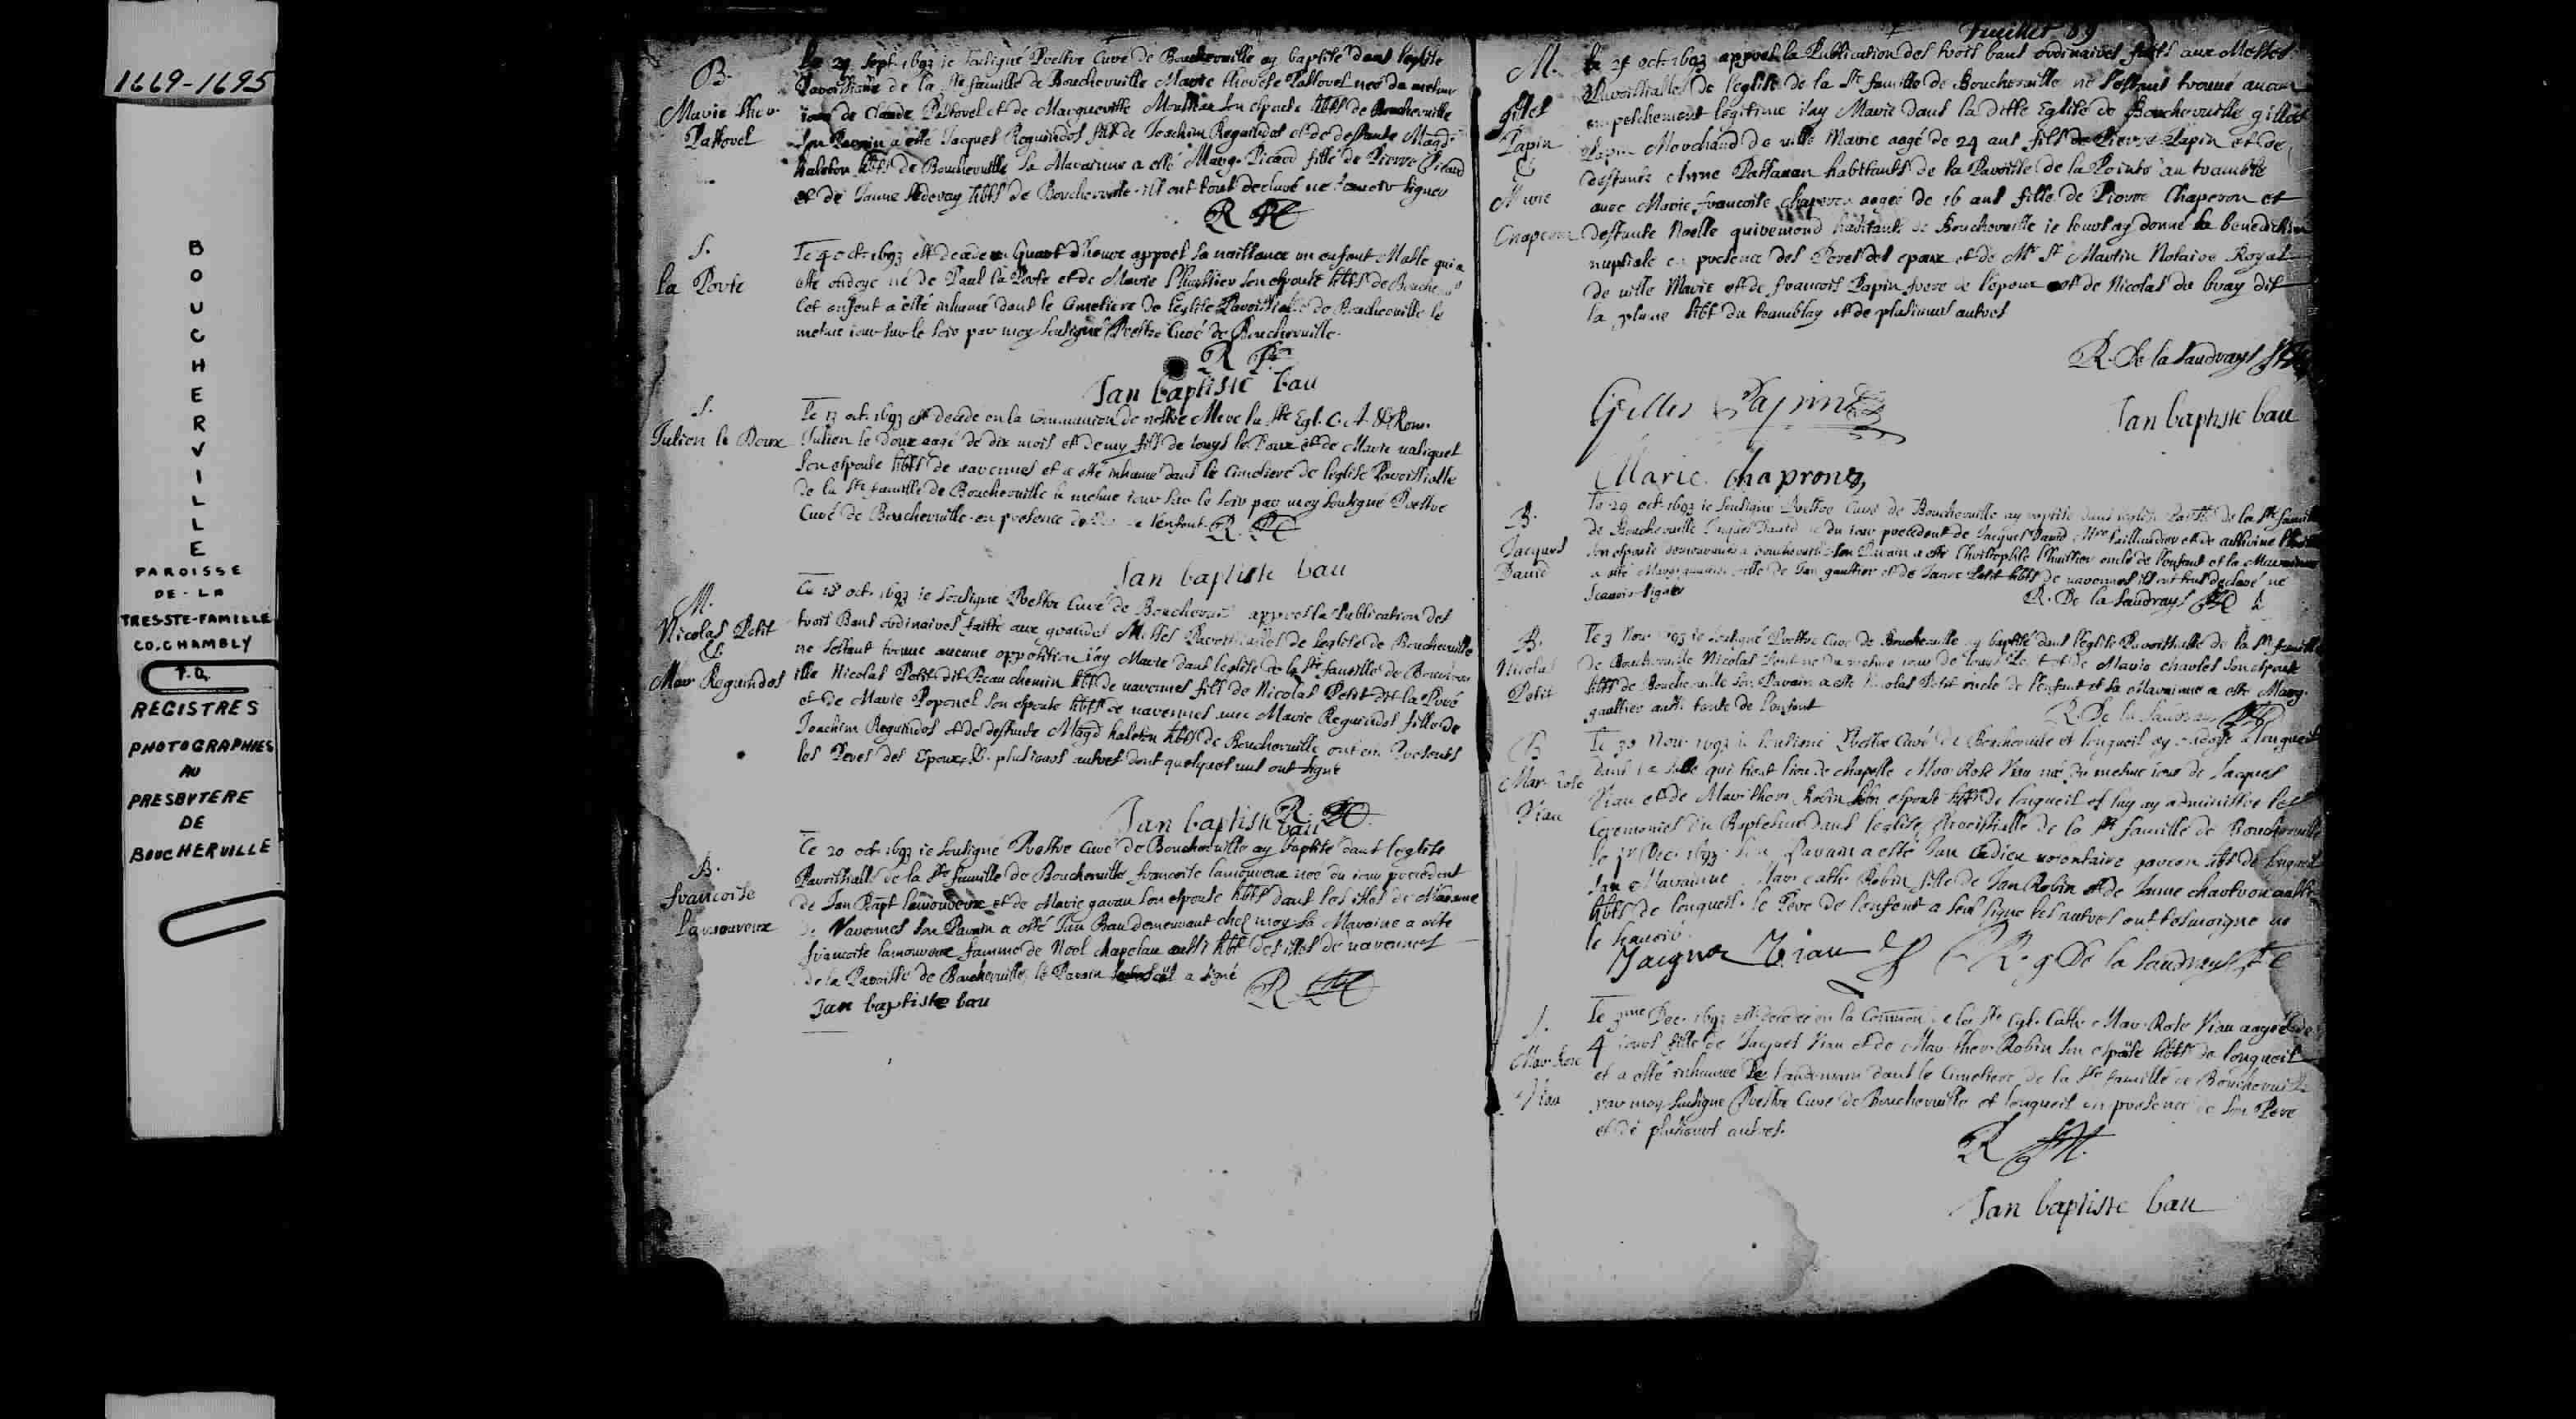 1669-1695
BOUCHERVILLE
PAROISSE
DE-LA
TRES-STE-FAMILLE
CO. CHAMBLY
P.Q.
REGISTRES
PHOTOGRAPHIES
AU
PRESBYTERE
DE
BOUCHERVILLE
B.
Marie Ther.
Passovel
Le 29 Sept. 1693 ie soussigné Prestre Curé de Boucherville ay baptisé dans leglise
Paroissialle de la Ste famille de Boucherville Marie Therese née du mesme
iour de Claude et de Margueritte son espouse hbts de Boucherville
son Parain a esté Jacques Reguindos fils de Joachim Reguindos et de deffunte Magd.
haleton hbts de Boucherville la Maraine a esté Marg. Picard fille de Pierre Picard
et de Janne Sederay hbts de Boucherville. ils ont tous declaré ne scavoir signer
S.
la Porte
Le 4 oct. 1693 est decedé un Quart d'heure appres sa naissance un enfant Masle qui a
esté ondoyé né de Paul la Porte et de Marie Lhuissier son espouse hbts de
Cet enfant a esté inhumé dans le Cimetiere de leglise Paroissialle de Boucherville le
mesme iour sur le soir par moy soussigné Prestre Curé de Boucherville.
Jan baptiste bau
S.
Julien le Doux
Le 13 oct. 1693 est decedé en la communion de nostre Mere la Ste Egl. C. A. & Rom.
Julien le doux aagé de dix mois et demy fils de Louys le Doux et de Marie valiquet
son espouse hbts de varennes et a esté inhumé dans le Cimetiere de leglise Paroissialle
de la Ste famille de Boucherville le mesme iour sur le soir par moy soussigné Prestre
Curé de Boucherville en presence de lenfant.
Jan baptiste bau
M.
Nicolas Petit
&
Mar. Reguindos
Le 18 oct. 1693 ie soussigné Prestre Curé de appres la Publication des
trois Bans ordinaires faitte aux grandes Messes Paroissialles de leglise de Boucherville
ne sestant trouvé aucune opposition iay Marié dans leglise de la Ste famille de
ille Nicolas Petit dit Beau chemin hbt de varennes fils de Nicolas Petit dit la Pré
et de Marie Poponel son espouse hbts de varennes avec Marie Reguindos fille de
Joachim Reguindos et de deffunte Magd haleton hbts de Boucherville ont esté Presents
les Peres des Epoux, & plusieurs autres dont quelques uns ont signé
Jan baptiste bau
B.
francoise
lamoureux
Le 20 oct. 1693 ie soussigné Prestre Curé de Boucherville ay baptisé dans leglise
Paroissialle de la Ste famille de Boucherville francoise lamoureux née du iour precedent
de Jan Bapt. lamoureux et de Marie gavau son espouse hbts dans les isles de
de Varennes son Parain a esté Jan Bau demeurant chez moy la Maraine a esté
francoise lamoureux famme de Noel chapelau aussi hbt des isles de varennes
de la Paroisse de Boucherville, le Parain a signé
Jan baptiste bau
feuillet 89
M.
gilles
Papin
&
Marie
Chaperon
Le oct. 1693 appres la Publication des trois bans ordinaires faits aux Messes
Paroissialles de leglise de la Ste famille de Boucherville ne sestant trouvé aucun
empeschement legitime iay Marié dans la ditte Eglise de Boucherville gilles
Papin Marchand de ville Marie aagé de 24 ans fils de Pierre Papin et de
deffunte Anne habitants de la Paroisse de la Pointe au tremble
avec Marie francoise chaperon aagée de 16 ans fille de Pierre Chaperon et
deffunte Noelle habitants de Boucherville ie leurs ay donné la benediction
nuptiale en presence des Peres des epoux et de Mr St Martin Notaire Royal
de ville Marie et de francois Papin frere de lepoux et de Nicolas du bray dit
la plume hbt du tremblay et de plusieurs autres
R. De la Saudrays
Gilles Papin
Jan baptiste bau
Marie chapron
B.
Jacques
David
Le 29 oct. 1693 ie soussigné Prestre Curé de Boucherville ay baptisé dans leglise de la Ste famille
de Boucherville Jacques David né du iour precedent de Jacques David Mtre taillandier et de
son espouse demeurants a Boucherville son Parain a esté Christophle Lhuissier oncle de lenfant et la Maraine
a esté fille de Jan gaultier et de Janne Petit hbts de varennes ils ont tous declaré ne
scavoir signer
R. De la Saudrays
B.
Nicolas
Petit
Le 3 Nov. 1693 ie soussigné Prestre Curé de Boucherville ay baptisé dans leglise Paroissialle de la Ste famille
de Boucherville Nicolas né du mesme iour de Louys et de Marie charles son espouse
hbts de Boucherville son Parain a esté Nicolas Petit oncle de lenfant et la Maraine a esté Marg.
gaultier aussi tante de lenfant
R. De la Saudrays
B
Mar. Rose
Viau
Le 30 Nov. 1693 ie soussigné Prestre Curé de Boucherville et longueil ay ondoyé a longueil
dans la salle qui tient lieu de chapelle Mar. Rose Viau née du mesme iour de Jacques
Viau et de Mar. ther. Robin son espouse hbts de longueil et luy ay administré les
Ceremonies du Baptesme dans leglise Paroissialle de la Ste famille de Boucherville
le 1er Dec. 1693. son Parain a esté Jan Cadieu volontaire garcon hbt de longueil
sa Maraine Mar. cathe Robin fille de Jan Robin et de Janne charton aussi
hbts de longueil. le Pere de lenfant a seul signé les autres ont tesmoigné ne
le scavoir.
Jacques Viau
R. De la Saudrays
S.
Mar. Rose
Viau
Le 3me Dec. 1693 est decedée en la Comuon de la Ste Egl. Cath. Mar. Rose Viau aagée de
4 iours fille de Jacques Viau et de Mar. ther. Robin son espouse hbts de longueil
et a esté inhumée le landemain dans le Cimetiere de la Ste famille de Boucherville
par moy soussigné Prestre Curé de Boucherville et longueil en presence de son Pere
et de plusieurs autres.
Jan baptiste bau